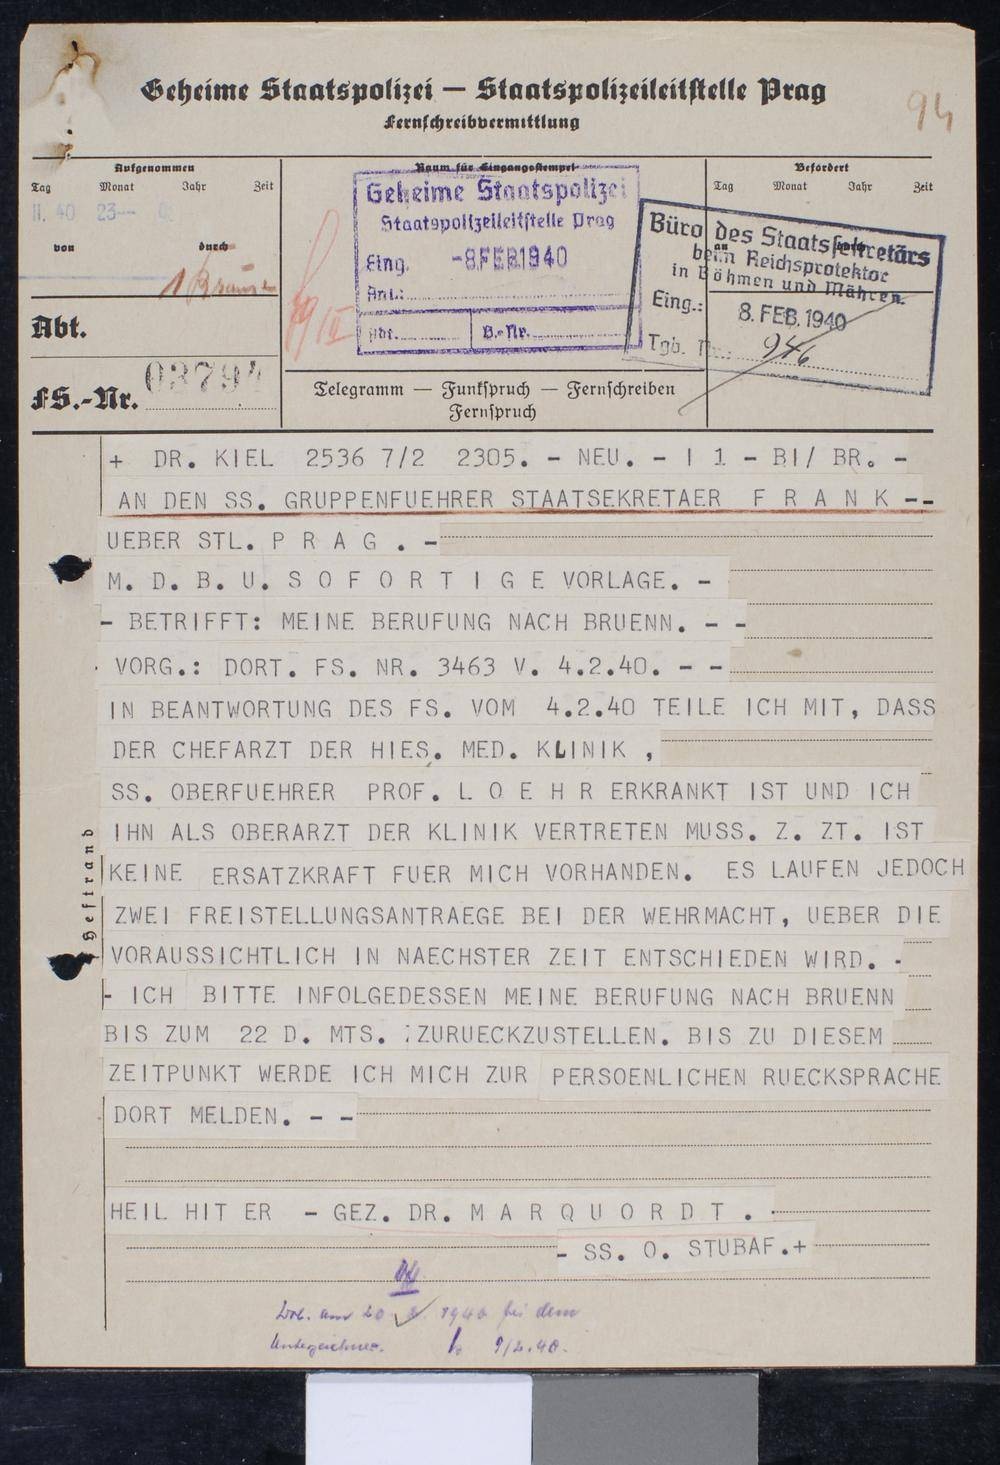 Geheime Staatspolizei — Staatspolizeileitstelle Prag
Fernschreibvermittlung
94
Aufgenommen
Tag Monat Jahr Zeit
II. 40 23--
von durch
Raum für Eingangsstempel
Geheime Staatspolizei
Staatspolizeileitstelle Prag
Eing. -8.FEB.1940
Anl.:
Abt. B.-Nr.
Befördert
Tag Monat Jahr Zeit
an
Büro des Staatssekretärs
beim Reichsprotektor
in Böhmen und Mähren.
Eing.: 8. FEB. 1940
Tgb. Nr.: 946
Abt.
FS.-Nr. 03794
Telegramm — Funkspruch — Fernschreiben
Fernspruch
+ DR. KIEL 2536 7/2 2305. - NEU. - I 1 - BI/ BR. -
AN DEN SS. GRUPPENFUEHRER STAATSEKRETAER F R A N K --
UEBER STL. P R A G . -
M. D. B. U. S O F O R T I G E VORLAGE. -
- BETRIFFT: MEINE BERUFUNG NACH BRUENN. - -
VORG.: DORT. FS. NR. 3463 V. 4.2.40. - -
IN BEANTWORTUNG DES FS. VOM 4.2.40 TEILE ICH MIT, DASS
DER CHEFARZT DER HIES. MED. KLINIK ,
SS. OBERFUEHRER PROF. L O E H R ERKRANKT IST UND ICH
IHN ALS OBERARZT DER KLINIK VERTRETEN MUSS. Z. ZT. IST
KEINE ERSATZKRAFT FUER MICH VORHANDEN. ES LAUFEN JEDOCH
ZWEI FREISTELLUNGSANTRAEGE BEI DER WEHRMACHT, UEBER DIE
VORAUSSICHTLICH IN NAECHSTER ZEIT ENTSCHIEDEN WIRD. -
- ICH BITTE INFOLGEDESSEN MEINE BERUFUNG NACH BRUENN
BIS ZUM 22 D. MTS. ZURUECKZUSTELLEN. BIS ZU DIESEM
ZEITPUNKT WERDE ICH MICH ZUR PERSOENLICHEN RUECKSPRACHE
DORT MELDEN. - -
Heftrand
HEIL HIT ER - GEZ. DR. M A R Q U O R D T .
- SS. O. STUBAF.+
am 20. 1940 bei dem
Unterzeichner. 9/2.40.